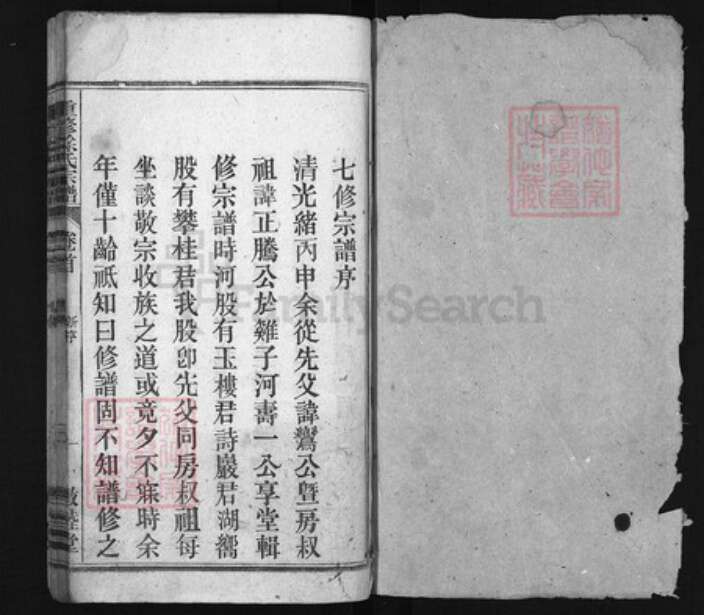 七修宗譜序
清光緒丙申余從先父諱鸞公暨房叔
祖諱正騰公於雞子河壽一公享堂輯
修宗譜時河股有玉樓君詩巖君湖衝
股有攀桂君我股卽先父同房叔祖每
坐談敬宗收族之道或竟夕不寐時余
年僅十齡祗知曰修譜固不知譜修之
重修徐氏宗譜
卷首
新序
一
敦睦堂
FamilySearch